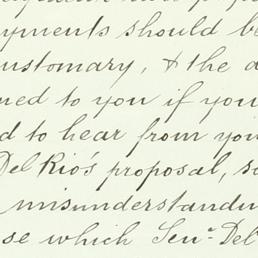 yments should be
ustomary, & the a
ned to you if you
d to hear from you
Del Rio's proposal, so
misunderstandin
se which Sen.r Del